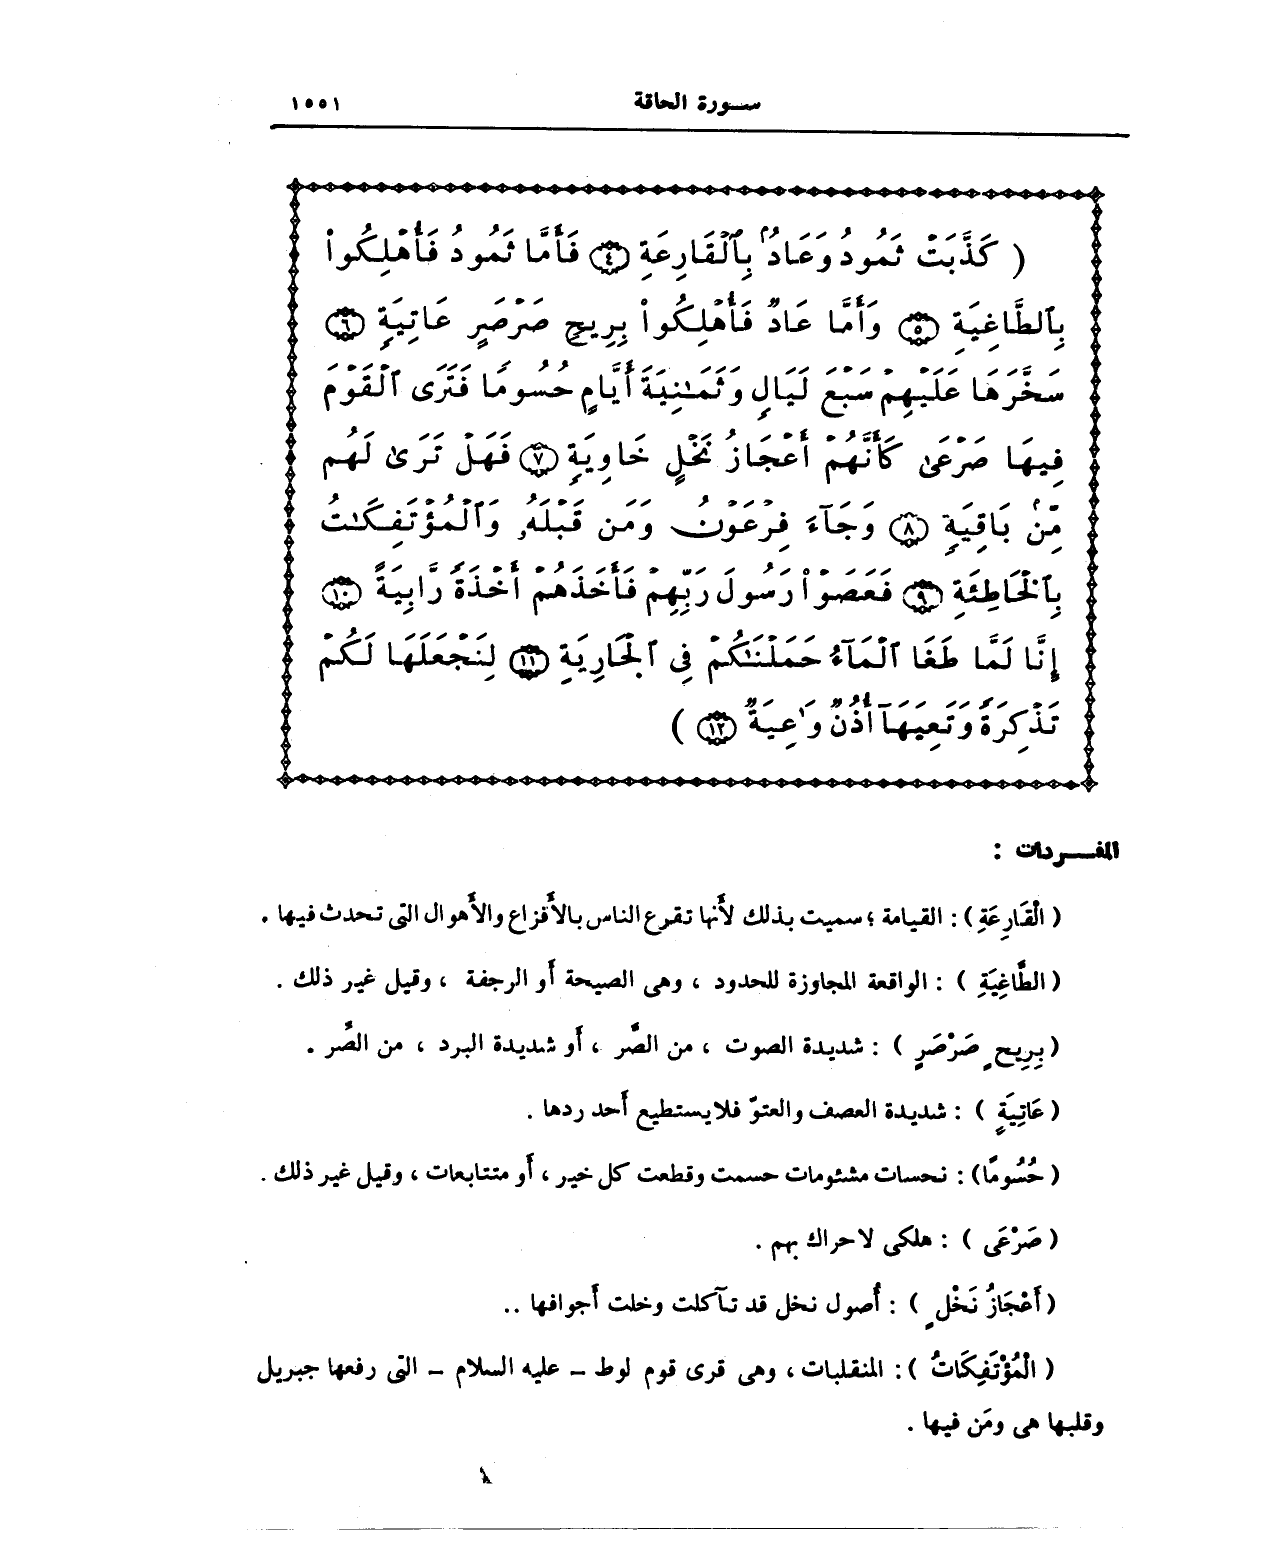 سورة الحاقة ١٥٥١
( كَذَّبَتْ ثَمُودُ وَعَادٌۢ بِٱلْقَارِعَةِ ۝٤ فَأَمَّا ثَمُودُ فَأُهْلِكُوا۟
بِٱلطَّاغِيَةِ ۝٥ وَأَمَّا عَادٌ فَأُهْلِكُوا۟ بِرِيحٍ صَرْصَرٍ عَاتِيَةٍ ۝٦
سَخَّرَهَا عَلَيْهِمْ سَبْعَ لَيَالٍ وَثَمَٰنِيَةَ أَيَّامٍ حُسُومًا فَتَرَى ٱلْقَوْمَ
فِيهَا صَرْعَىٰ كَأَنَّهُمْ أَعْجَازُ نَخْلٍ خَاوِيَةٍ ۝٧ فَهَلْ تَرَىٰ لَهُم
مِّنۢ بَاقِيَةٍ ۝٨ وَجَآءَ فِرْعَوْنُ وَمَن قَبْلَهُۥ وَٱلْمُؤْتَفِكَٰتُ
بِٱلْخَاطِئَةِ ۝٩ فَعَصَوْا۟ رَسُولَ رَبِّهِمْ فَأَخَذَهُمْ أَخْذَةً رَّابِيَةً ۝١٠
إِنَّا لَمَّا طَغَا ٱلْمَآءُ حَمَلْنَٰكُمْ فِى ٱلْجَارِيَةِ ۝١١ لِنَجْعَلَهَا لَكُمْ
تَذْكِرَةً وَتَعِيَهَآ أُذُنٌ وَٰعِيَةٌ ۝١٢ )
المفـردات :
( الْقَارِعَةِ ) : القيامة ؛ سميت بذلك لأنها تقرع الناس بالأفزاع والأهوال التى تحدث فيها .
( الطَّاغِيَةِ ) : الواقعة المجاوزة للحدود ، وهى الصيحة أو الرجفة ، وقيل غير ذلك .
( بِرِيحٍ صَرْصَرٍ ) : شديدة الصوت ، من الصَّر ، أو شديدة البرد ، من الصُّر .
( عَاتِيَةٍ ) : شديدة العصف والعتوّ فلا يستطيع أحد ردها .
( حُسُومًا ) : نحسات مشئومات حسمت وقطعت كل خير ، أو متتابعات ، وقيل غير ذلك .
( صَرْعَى ) : هلكى لا حراك بهم .
( أَعْجَازُ نَخْلٍ ) : أُصول نخل قد تآكلت وخلت أجوافها ..
( الْمُؤْتَفِكَاتُ ) : المنقلبات ، وهى قرى قوم لوط – عليه السلام – التى رفعها جبريل
وقلبها هى ومَن فيها .